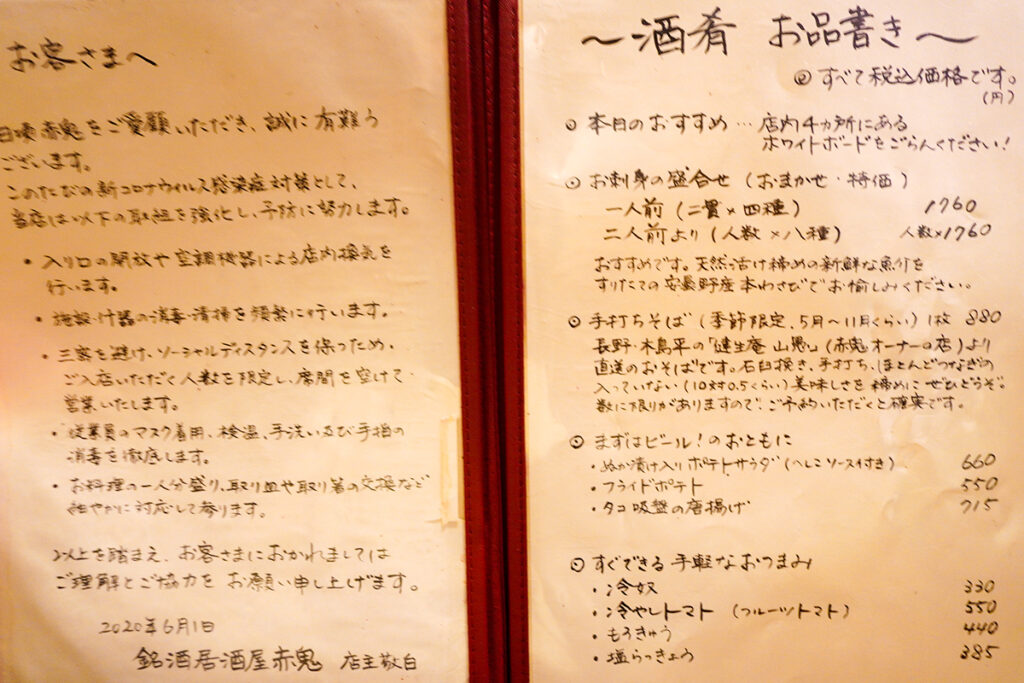 お客さまへ
日頃赤鬼をご愛顧いただき、誠に有難う
ございます。
このたびの新コロナウィルス感染症対策として、
当店は以下の取組を強化し、予防に努力します。
・入り口の開放や空調機器による店内換気を
行います。
・施設・什器の消毒・清掃を頻繁に行います。
・三密を避け、ソーシャルディスタンスを保つため、
ご入店いただく人数を限定し、席間を空けて
営業いたします。
・従業員のマスク着用、検温、手洗い及び手指の
消毒を徹底します。
・お料理の一人分盛り、取り皿や取り箸の交換など
細やかに対応して参ります。
以上を踏まえ、お客さまにおかれましては
ご理解とご協力をお願い申し上げます。
2020年6月1日
銘酒居酒屋赤鬼 店主敬白
～酒肴 お品書き～
◎すべて税込価格です。
(円)
◎本日のおすすめ…店内4カ所にある
ホワイトボードをごらんください!
◎お刺身の盛合せ(おまかせ・特価)
一人前(二貫×四種) 1760
二人前より(人数×八種) 人数×1760
おすすめです。天然・活け締めの新鮮な魚介を
すりたての安曇野産本わさびでお愉しみください。
◎手打ちそば(季節限定、5月～11月くらい)1枚 880
長野・木島平の「蓮生庵 山鬼」(赤鬼オーナーの店)より
直送のおそばです。石臼挽き、手打ち、ほとんどつなぎの
入っていない(10対0.5くらい)美味しさを締めにぜひどうぞ。
数に限りがありますので、ご予約いただくと確実です。
◎まずはビール!のおともに
・ぬか漬け入りポテトサラダ(へしこソース付き) 660
・フライドポテト 550
・タコ吸盤の唐揚げ 715
◎すぐできる手軽なおつまみ
・冷奴 330
・冷やしトマト(フルーツトマト) 550
・もろきゅう 440
・塩らっきょう 385